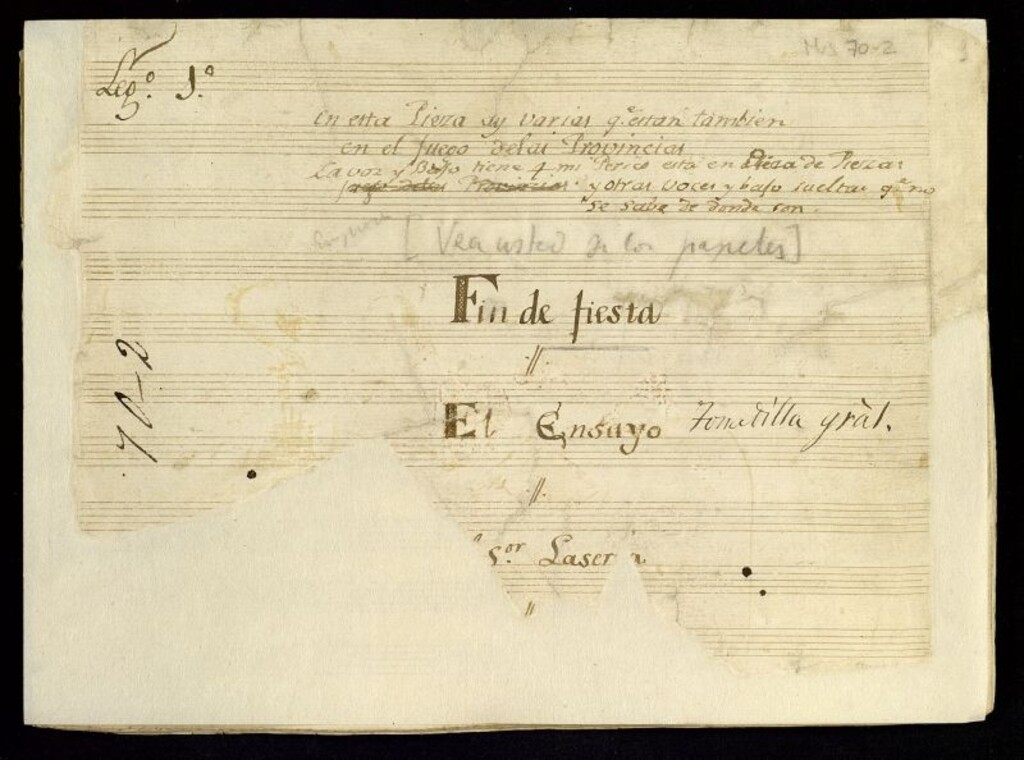 Mus 70-2
Leg.º 1.º
En esta Pieza ay varias q.e estan tambien
en el Juego de las Provincias
La voz y Bajo tiene 4 mi Perico esta en Pieza de Piezas
juego de las Provincias y otras voces y bajo sueltas q.e no
se sabe de donde son.
[Vea usted si los papeles]
Fin de fiesta
//
70-2
El Ensayo Tonadilla gràl.
//
s.or Laser a
//